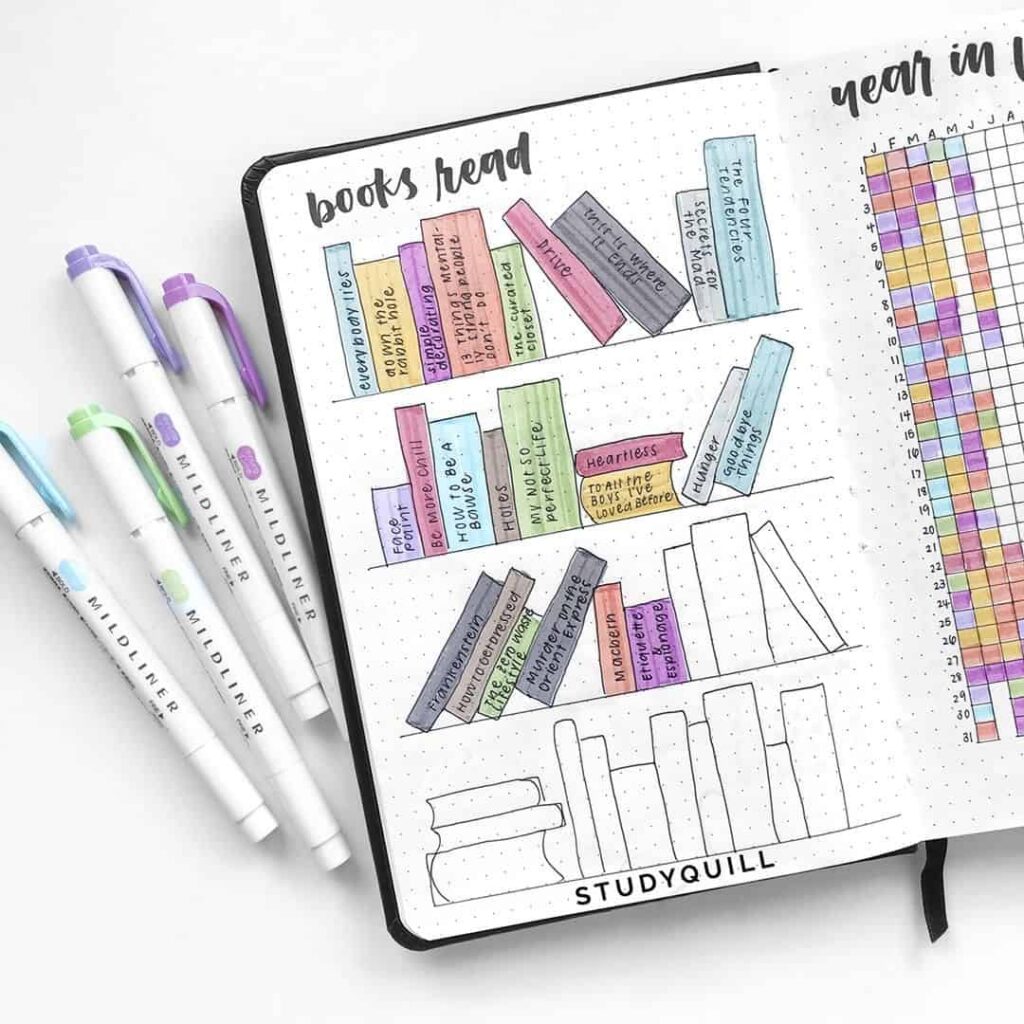 books read
everybody lies
down the
rabbit hole
simple
decorating
13 Things Mental-
ly strong people
don't do
the curated
closet
Drive
this is where
it Ends
secrets for
the Mad
The Four
Tendencies
Face
paint
Be more chill
HOW TO BE A
Bawse
Holes
My not so
perfect Life
Heartless
To All the
Boys I've
Loved Before
Hunger
Goodbye
Things
Frankenstein
The zero waste
lifestyle
Murder on the
Orient Express
Etiquette
&
Espionage
STUDYQUILL
year in
J F M A M J J A
1
2
3
4
5
6
7
8
9
10
11
12
13
14
15
16
17
18
19
20
21
22
23
24
25
26
27
28
29
30
31
MILDLINER
MILDLINER
MILDLINER
MILDLINER